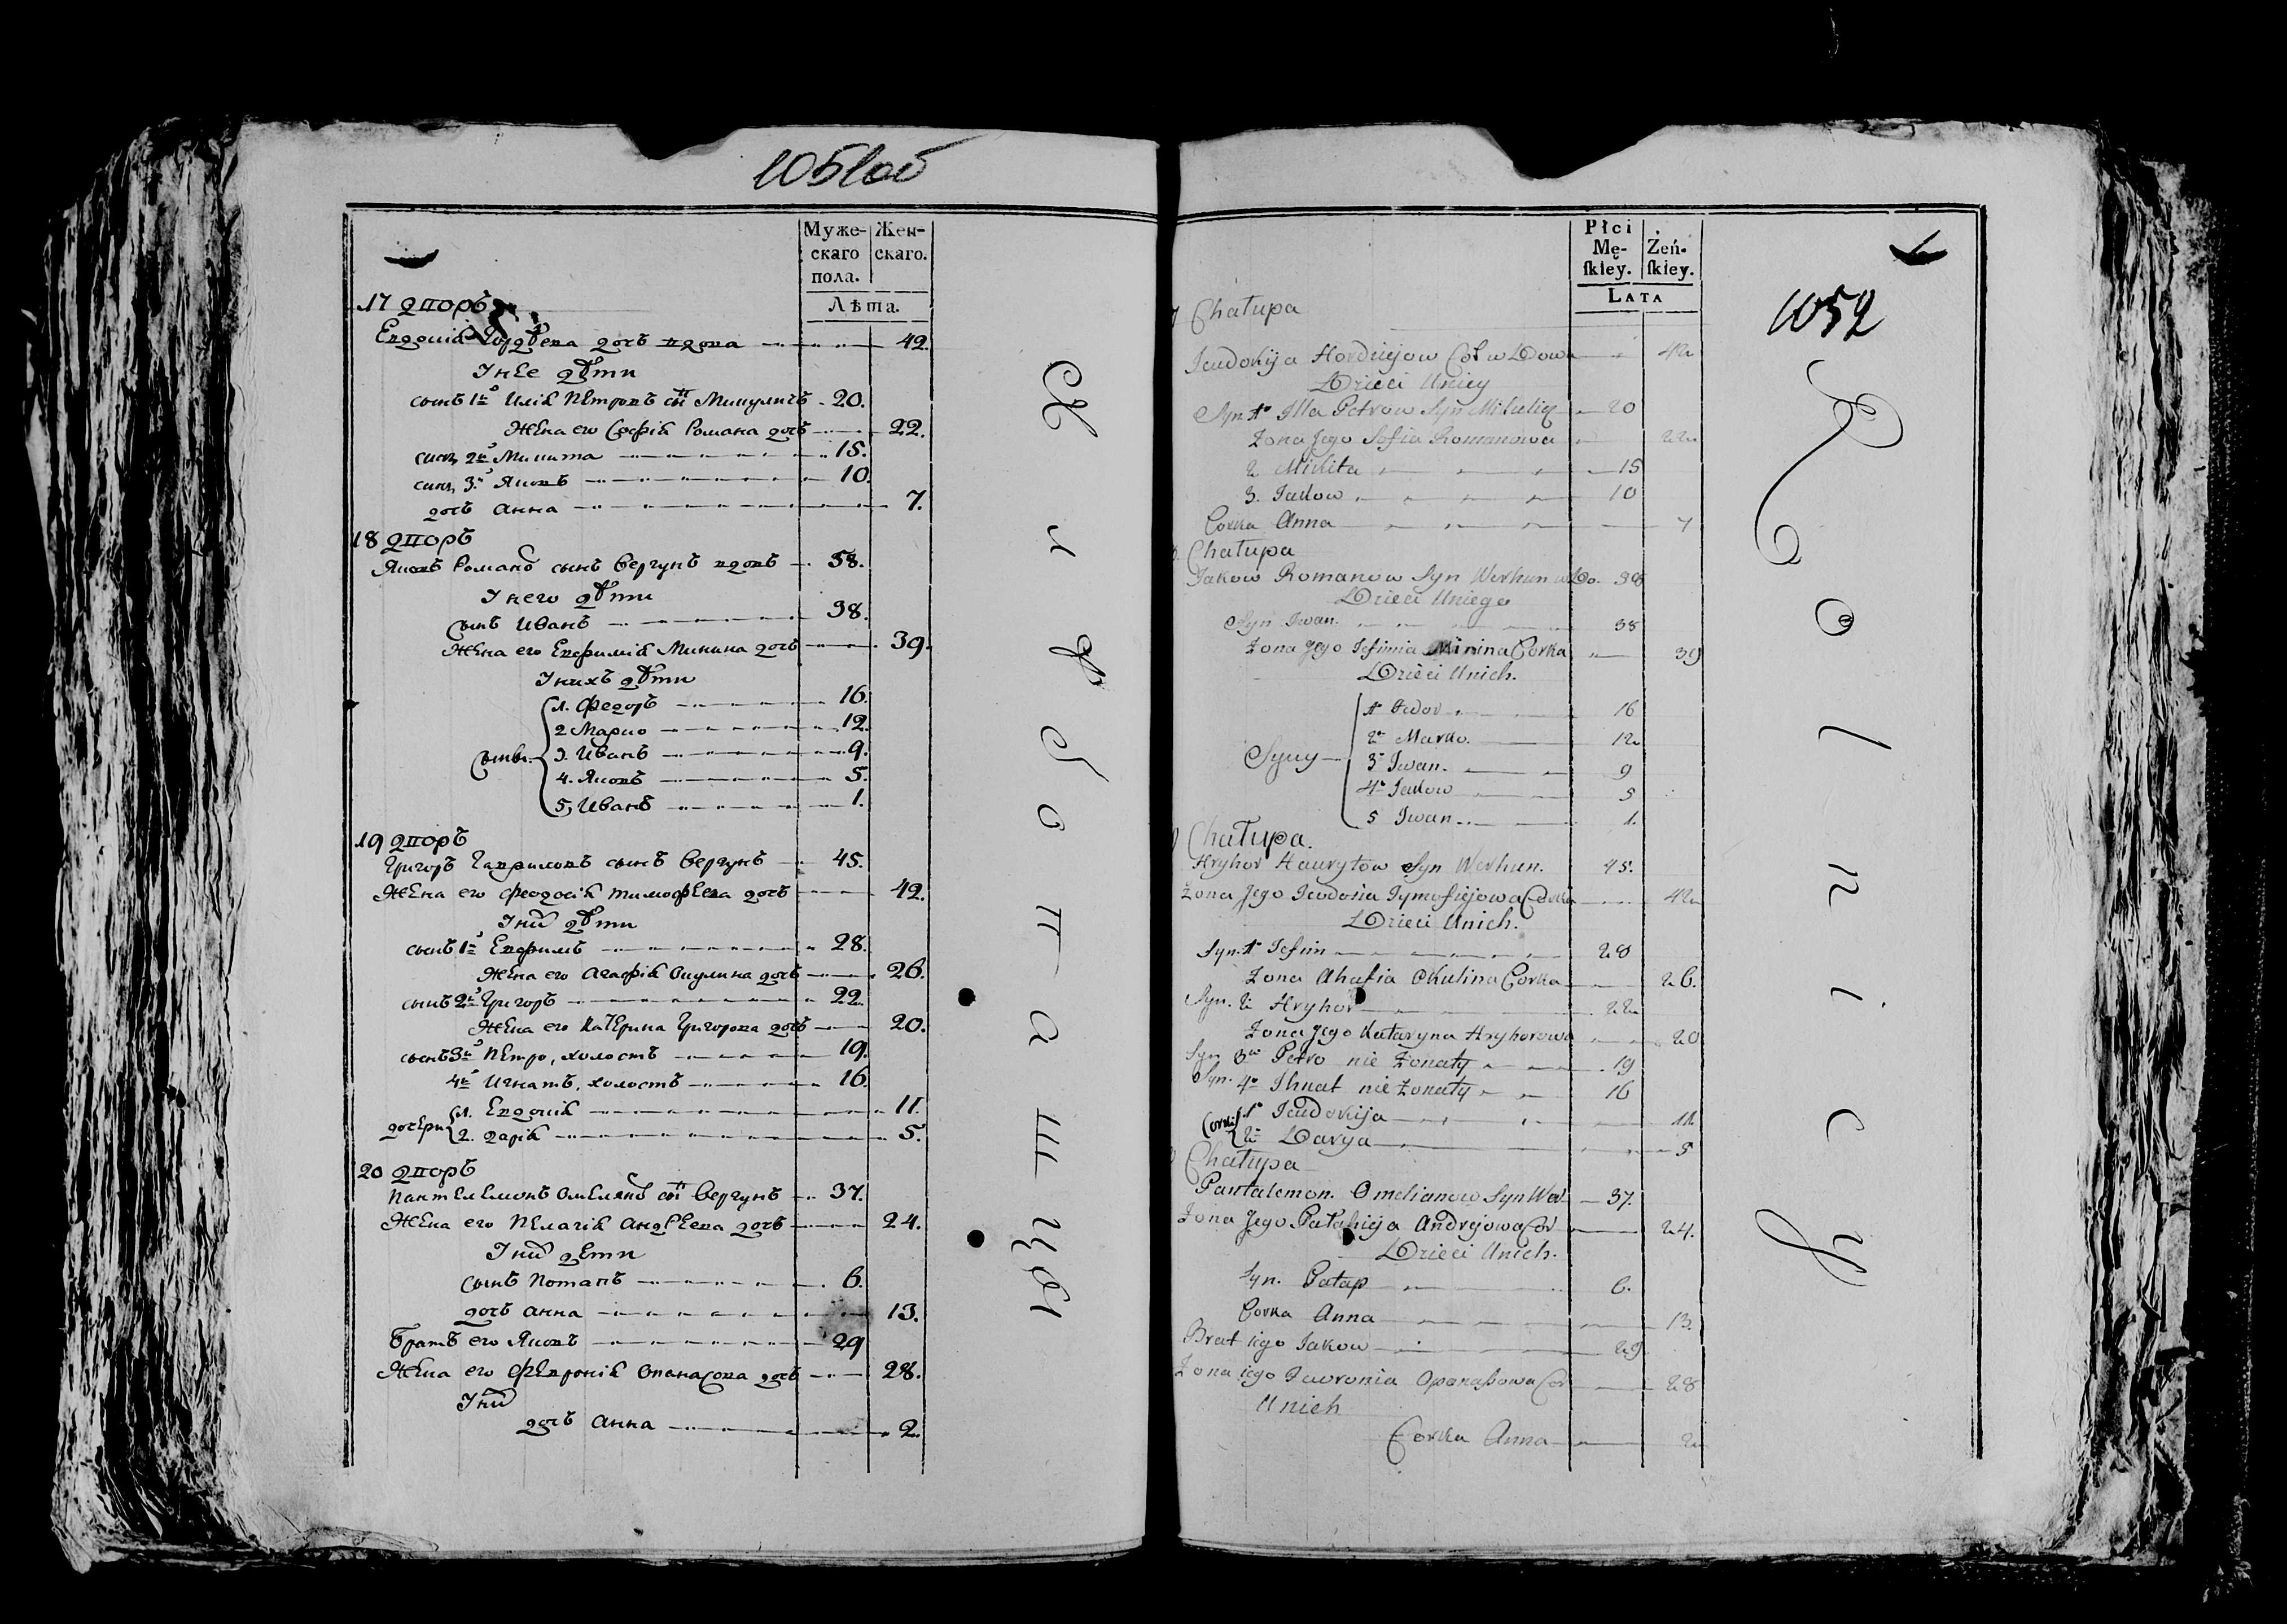 1051об
Муже-
скаго
пола.
Жен-
скаго.
Лѣта.
17 дворъ
Евдокія Гордѣева дочь вдова 42.
У нее дѣти
сынъ 1й Илія Петровъ сынъ Микуличъ 20.
Жена его Софія Романа дочь 22.
сынъ 2й Микита 15.
сынъ 3й Яковъ 10.
дочь Анна 7.
18 дворъ
Яковъ Романовъ сынъ Вергунъ вдовъ 58.
У него дѣти
Сынъ Иванъ 38.
Жена его Евфимія Минина дочь 39.
У нихъ дѣти
Сыны
1. Федоръ 16.
2 Марко 12.
3. Иванъ 9.
4. Яковъ 5.
5, Иванъ 1.
19 дворъ
Григоръ Гавриловъ сынъ Вергунъ 45.
Жена его Феодосія Тимофеева дочь 42.
У них дѣти
сынъ 1й Евфимъ 28.
Жена его Агафія Окулина дочь 26.
сынъ 2й Григоръ 22.
Жена его Катерина Григорова дочь 20.
сынъ 3й Петро, холостъ 19.
4й Игнатъ, холостъ 16.
дочери
1. Евдокія 11.
2. Дарія 5.
20 дворъ
Пантелемонъ Омеляновъ сынъ Вергунъ 37.
Жена его Пелагія Андреева дочь 24.
У них дети
Сынъ Потапъ 6.
дочь Анна 13.
Братъ его Яковъ 29
Жена его Февронія Опанасова дочь 28.
У них
дочь Анна 2.
Хлѣбопашцы
Płci
Mę-
ſkiey.
Żeń-
ſkiey.
LATA
1052
Chałupa
Jeudokija Hordiejow Cor wDowa 42
Dzieci Uniey
Syn 1o Illa Petrow Syn Mikulicz 20
Żona Jego Sofia Romanowa 22
2 Mikita 15
3. Jakow 10
Corka Anna 7
Chałupa
Jakow Romanow Syn Werhun wDo. 58
Dzieci Uniego
Syn Iwan. 38
Żona Jego Jefimia Minina Corka 39
Dzieci Unich.
Syny
1o Fedor 16
2o Marko. 12
3o Iwan. 9
4o Jakow 5
5 Iwan 1.
Chałupa.
Hryhor Hauryłow Syn Werhun. 45.
Żona Jego Jeudosia Tymofiejowa Corka 42
Dzieci Unich.
Syn. 1o Jefim 28
Żona Ahafia Okulina Corka 26.
Syn. 2o Hryhor 22
Żona Jego Kataryna Hryhorowa 20
Syn 3o Petro nie Żonaty 19
Syn. 4o Ihnat nie Żonaty 16
Corki
1o Jeudokija 11
2o Darya 5
Chałupa
Pantalemon. Omelianow Syn Wer 37.
Żona Jego Pałahija Andrejowa Cor 24.
Dzieci Unich.
Syn. Patap 6.
Corka Anna 13.
Brat iego Jakow 29
Żona iego Jewronia Opanasowa Cor 28
Unich
Corka Anna 2
Rolnicy